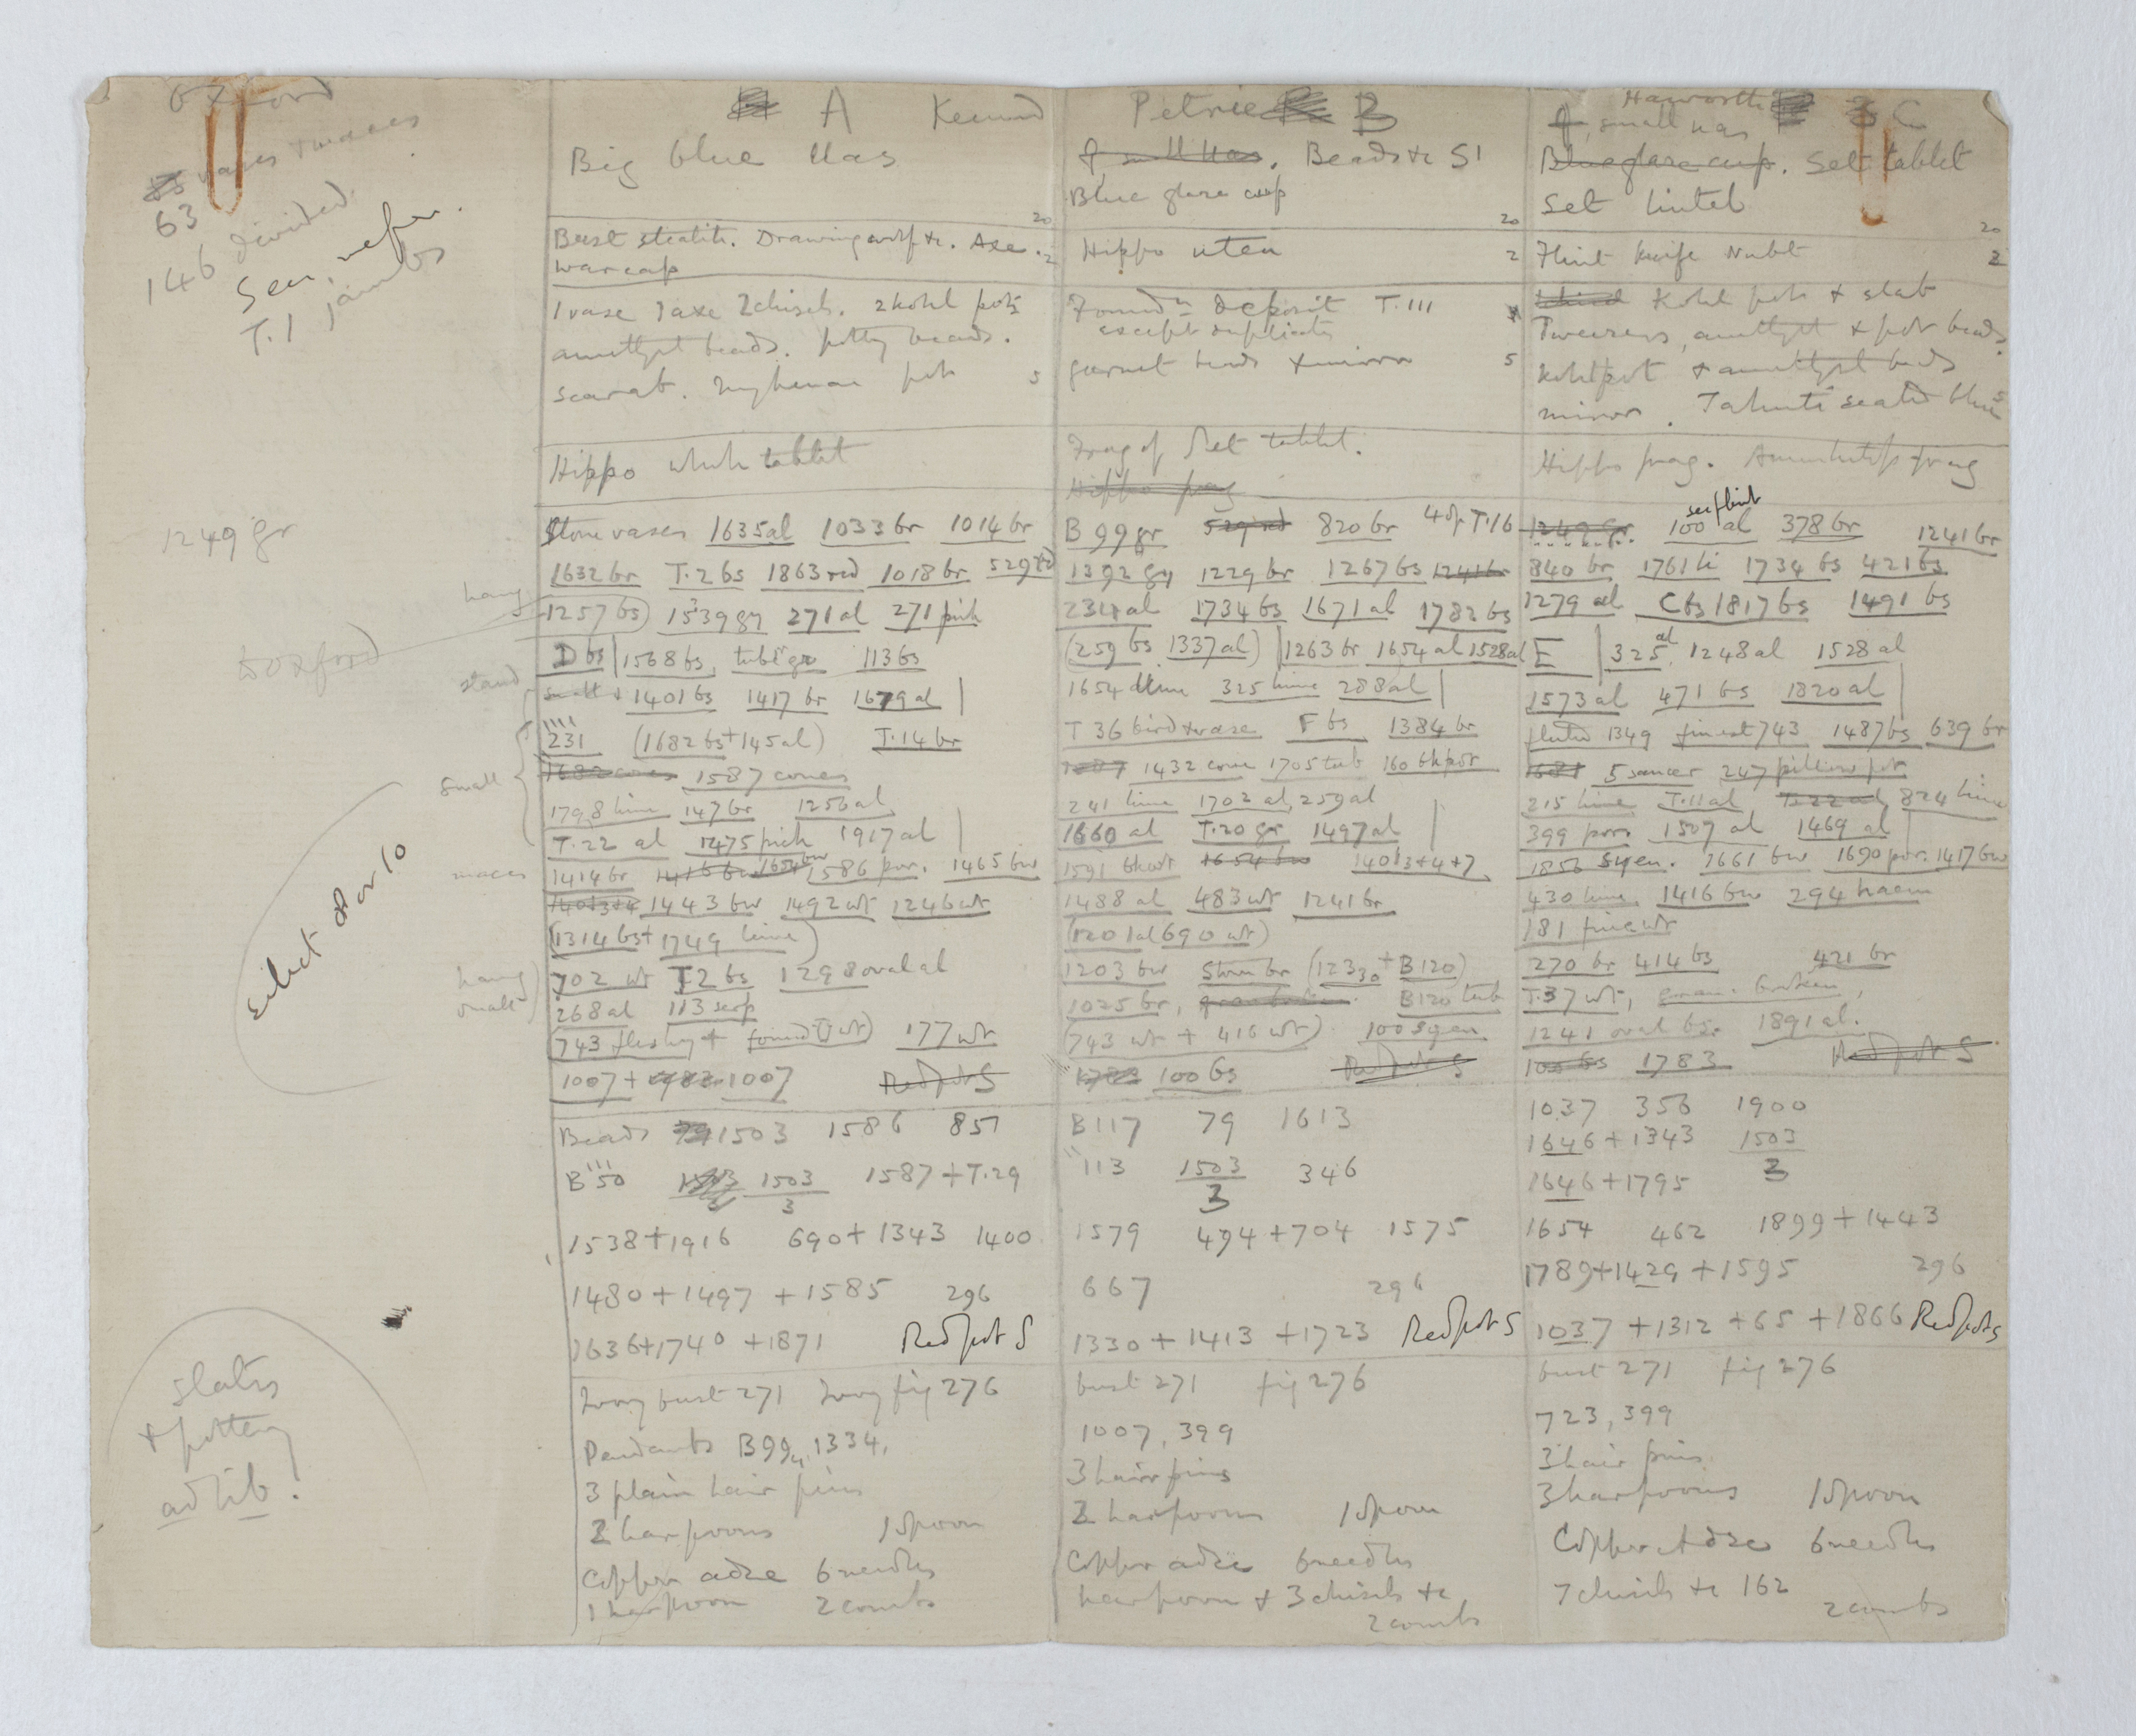 Oxford
vases & maces
63
146 divided
Sen. nefer.
T.1 jambs
1249 gr
to Oxford
Select 8 or 10
Slates
& pottery
ad lib!
hang
stand
small
maces
hang
small
A Kennard
Big blue Uas
20
Bust steatite. Drawing wolf &c. Axe. 2
war cap
1 vase 1 axe 2 chisels. 2 kohl pots
amethyst beads. potty beads.
scarab. Mykenae pot 5
Hippo white tablet
Stone vases 1635 al 1033 br 1014 br
1632 br T.2 bs 1863 red 1018 br 529 rd
1257 bs) 1539 gy 271 al 271 pink
D bs | 1568 bs, tube gr 113 bs
small & 1401 bs 1417 br 1679 al |
231 (1682 bs + 145 al) T.14 br
1682 cones 1587 cones
1798 lime 147 br 1256 al
T.22 al 1475 pink 1917 al |
1414 br 1416 bw 1654 bw 1586 por. 1465 bw
1401 3+4 1443 bw 1492 wt 1246 wt
(1314 bs + 1749 lime)
702 wt T2 bs 1298 oval al
268 al 113 serp
(743 fleshy + found T wt) 177 wt
1007 + 1783 1007 Red pot S
Beads 79 1503 1586 857
B 50 1503 1503/3 1587 + T.29
1538 + 1916 690 + 1343 1400
1480 + 1497 + 1585 296
1636 + 1740 + 1871 Red pot S
Ivory bust 271 Ivory fig 276
Pendants B99, 1334,
3 plain hair pins
2 harpoons 1 spoon
Copper adze 6 needles
1 harpoon 2 combs
Petrie B
f small Uas. Beads &c S1
Blue glaze cup
20
Hippo uten 2
Foundn deposit T.III
except duplicates
garnet beads & mirror 5
Frag of Set tablet.
Hippo frag
B 99 gr 529 rd 820 br 4 of T.16
1392 gy 1229 br 1267 bs 1241 br
234 al 1734 bs 1671 al 1782 bs
(259 bs 1337 al) | 1263 br 1654 al 1528 al
1654 lime 325 lime 288 al |
T 36 bird vase F bs 1384 br
1587 1432 cone 1705 tub 160 bk pot
241 lime 1702 al, 259 al
1660 al T.20 gr 1497 al |
1591 1654 bw 1401 3+4+7
1488 al 483 wt 1241 br
(1201 al 690 wt)
1203 bw (1233 + B120)
1025 br, B120 tub
(743 wt + 416 wt) 100 syen
1783 100 bs Red pot S
B117 79 1613
113 1503/3 346
1579 494 + 704 1575
667 296
1330 + 1413 + 1723 Red pot S
bust 271 fig 276
1007, 399
3 hair pins
2 harpoons 1 spoon
Copper adze 6 needles
harpoon & 3 chisels &c
2 combs
Haworth C
f, small Uas
Blue glaze cup. Set tablet
Set lintel
20
Flint knife Nubt 2
Kohl pot & slab
Tweezers, amethyst & pot beads.
Kohl pot & amethyst beads
mirror. Tahuti seated blue 5
Hippo frag. Amenhotep frag
1249 gr. 100 al 378 br 1241 br
840 br 1761 li 1734 bs 421 bs
1279 al C bs 1817 bs 1491 bs
E | 325 al 1248 al 1528 al
1573 al 471 bs 1820 al |
fluted 1349 finest 743 1487 bs 639 br
1681 5 saucer 247 pillow pot
215 lime T.11 al T.22 al 824 lime
399 porr 1507 al 1469 al |
1856 syen. 1661 bw 1690 por. 1417 bw
430 lime 1416 bw 294 haem
181 fine wt
270 br 414 bs 421 br
T.37 wt, broken,
1241 oval bs. 1891 al.
100 bs 1783 Red pot S
1037 356 1900
1646 + 1343 1503/3
1646 + 1795
1654 462 1899 + 1443
1789 + 1429 + 1595 296
1037 + 1312 + 65 + 1866 Red pot S
bust 271 fig 276
723, 399
3 hair pins
3 harpoons 1 spoon
Copper Adze 6 needles
7 chisels &c 162
2 combs